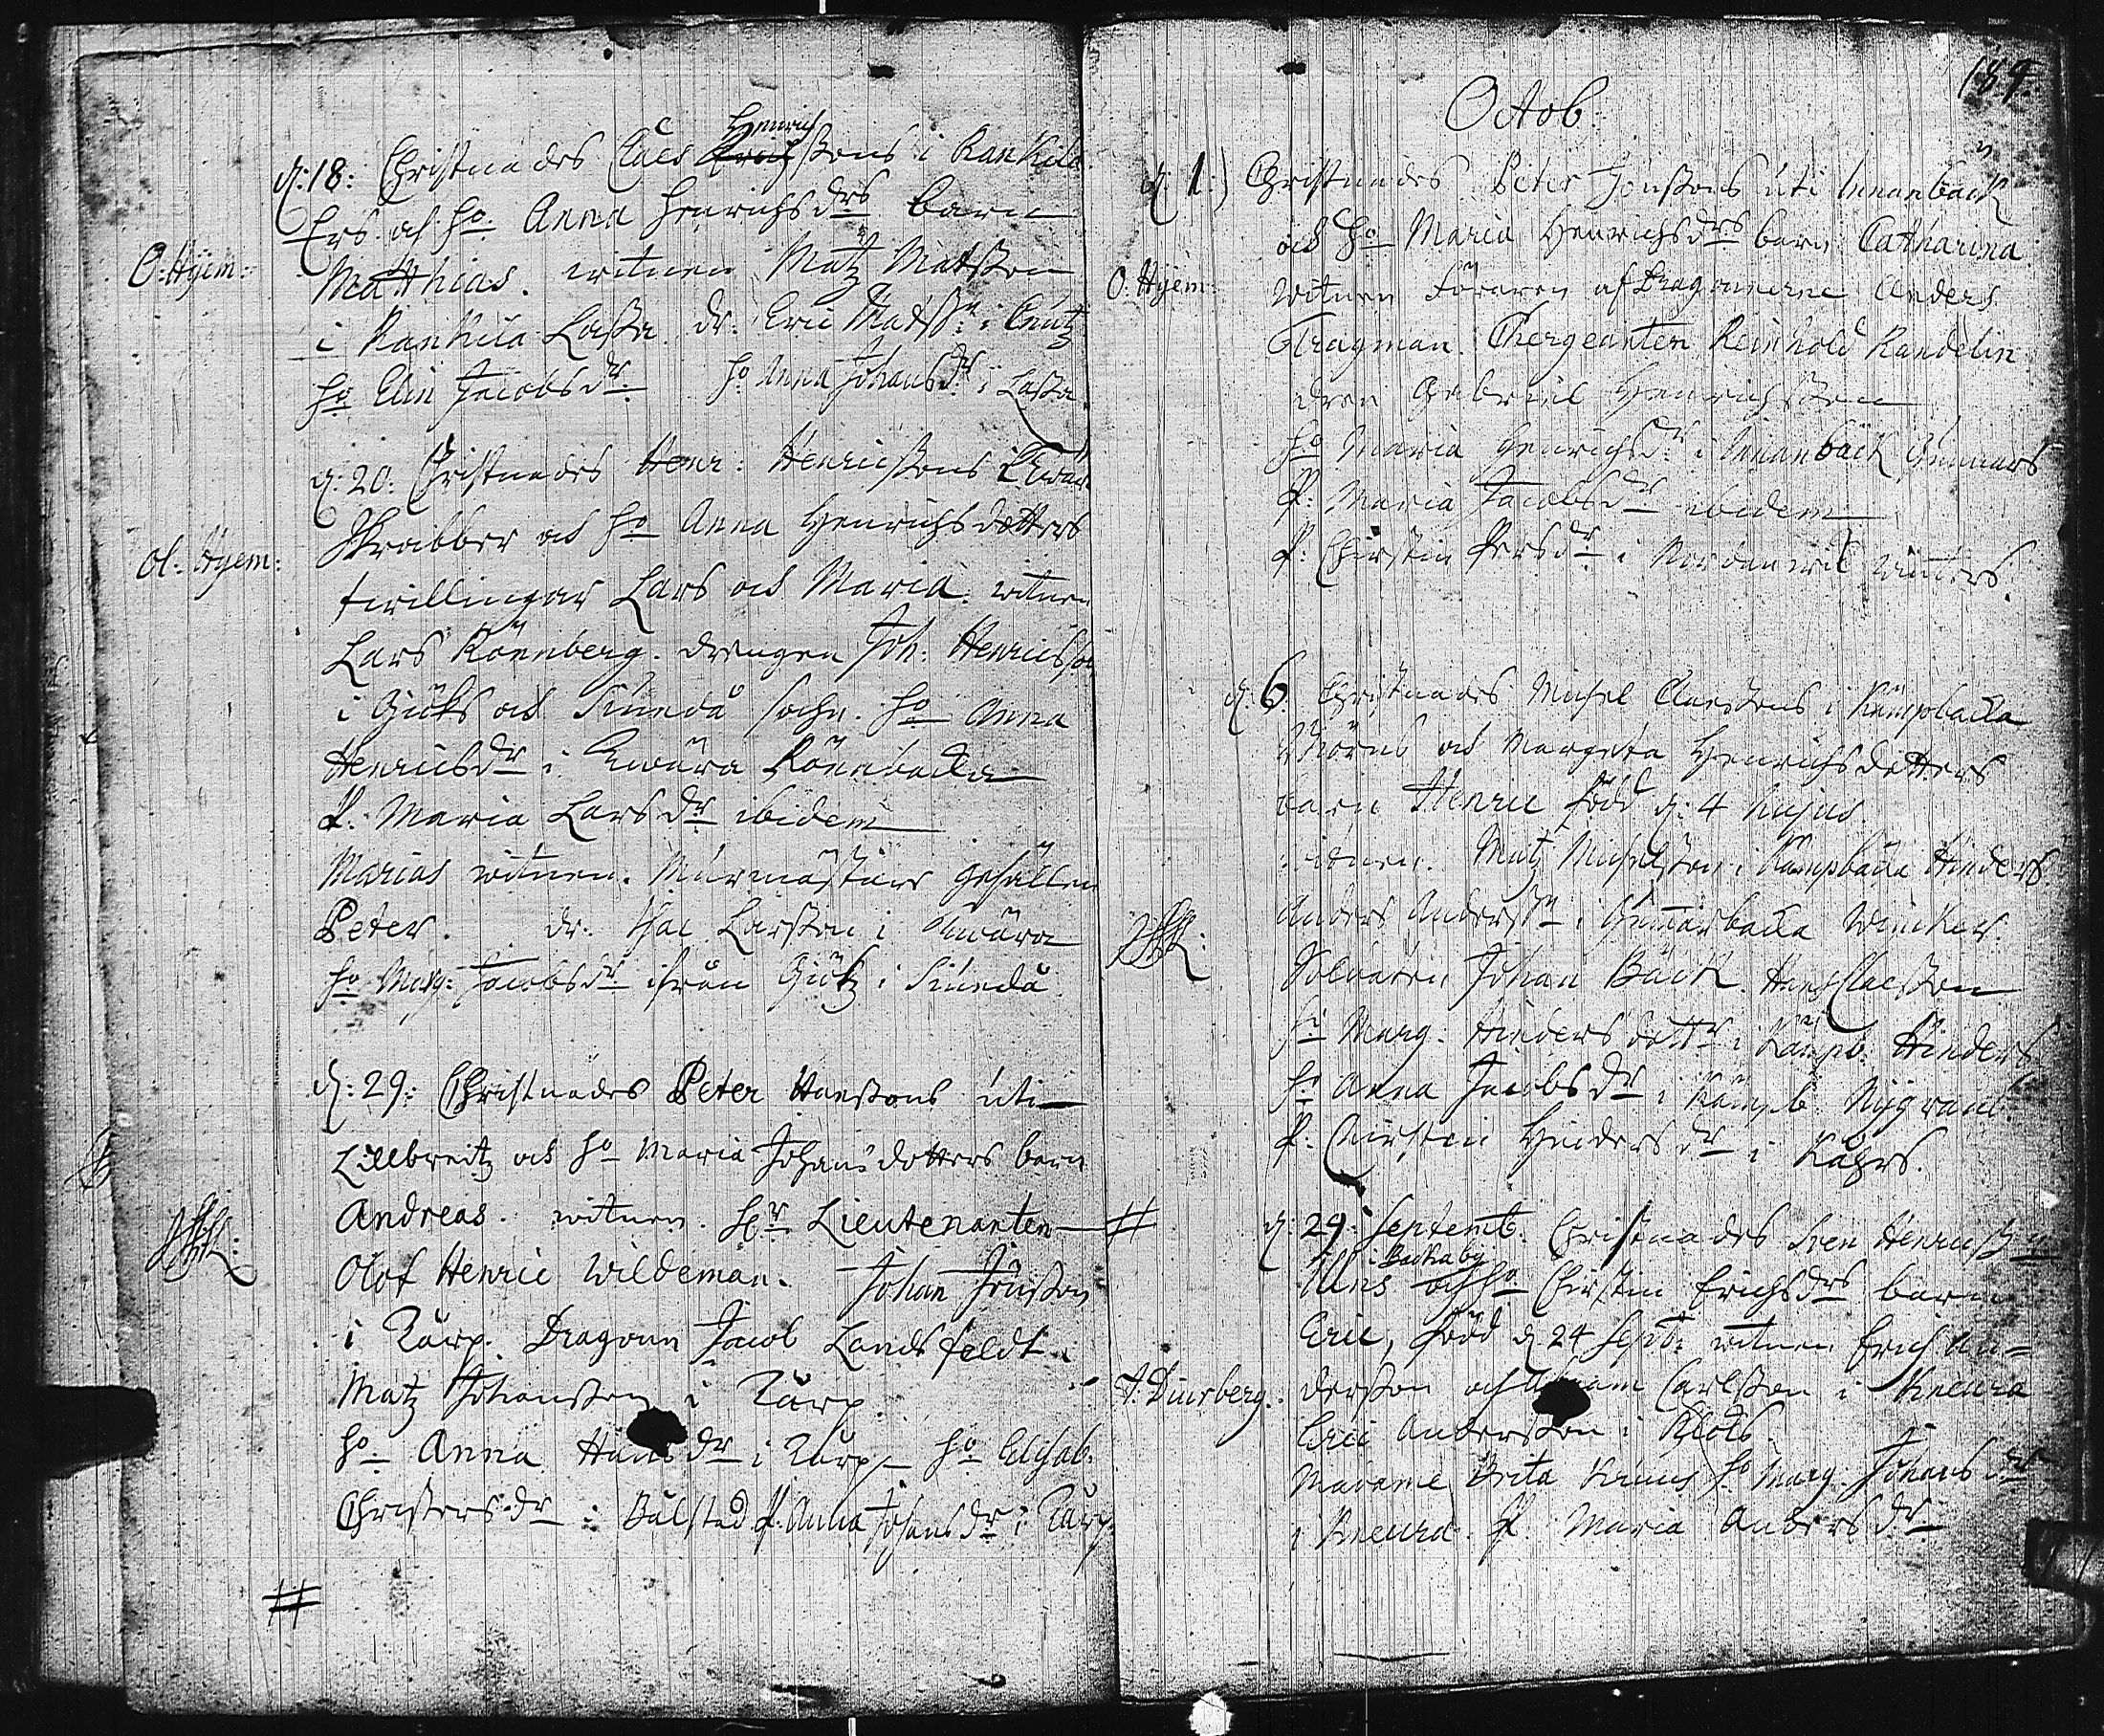 d. 18: Christnades Claes Henrichssons i Rankila
Ers och ho Anna Henrichsdrs barn
O: Hyem:
Matthias. witnen Matz Matsson
i Rankila Lassa. dr. Eric Madssn i
ho Elin Jacobsdr ho Anna Johansdr i Lassa
d. 20: Christnades Henr: Henricssons i
Skrabber och ho Anna Henrichsdotters
Ol. Hyem:
twillingar Lars och Maria. witnen
Lars Rönnberg. drengen Joh: Henricsson
i och Siundå sochn. ho Anna
Henricsdr i Rönnbacka
P. Maria Larsdr ibidem
Marias witnen. Murmästare gesällen
Peter. dr. Isac Larsson i
ho Marg: Jacobsdr ifrån i Siundå
d. 29: Christnades Peter Hanssons uti
Lillbreitz och ho Maria Johansdotters barn
Andreas. witnen. Hr Lieutenanten
Olof Henric Wildeman. Johan Jönsson
i Tärp. Dragoun Jacob Landsfeldt
Matz Johansson i Tärp
ho Anna Hansdr i Tärp ho Elisab.
Christersdr i Bålstad P. Anna Johansdr i Tärp
#
184.
Octob.
d. 1:) Christnades Peter Jönssons uti Innanbäck
och ho Maria Henrichsdrs barn Catharina
O. Hyem:
witnen Föraren af Dragounerne Anders
Tragman. Chergeanten Reinhold Randelin
dren Gabriel Henrichsson
ho Maria Henrichsdr i Innanbäck Gunnars
P. Maria Jacobsdr ibidem
P. Chirstin Persdr i Nordanwik
d. 6 Christnades Michel Claessons i Kämpbacka
och Margeta Henrichsdotters
barn Henric född d. 4 hujus.
witnen. Matz Michelsson i Kämpbacka Hinders
Anders Anderssn i Gunnarbacka Winckar.
Soldaten Johan Bäck. Hans Claesson
ho Marg: Hindersdottr i Kämpb. Hinders
ho Anna Jacobsdr i Kämpb. Nygrand.
P. Chirstin Hindersdr i Kåhrs.
# d. 29. Septemb. Christnades Sven Henricss
i Backaby
och ho Chirstin Erichsdrs barn
Eric, född d 24 Septb: witnen Erich An=
J. Diurberg.
dersson och Carlsson i Kneura
Eric Andersson i Klots.
Madame Brita ho Marg. Johansdr
i Kneura. P. Maria Andersdr